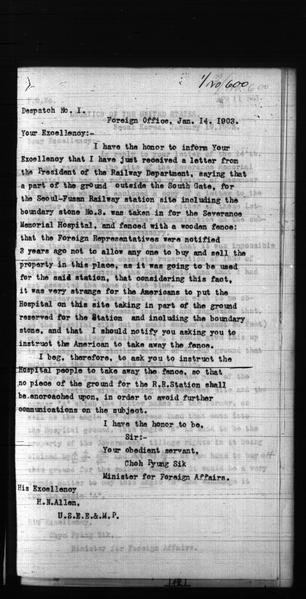 1/120/600
Despatch No. I.
Foreign Office, Jan. 14, 1903.
Your Excellency:-
I have the honor to inform Your
Excellency that I have just received a letter from
the President of the Railway Department, saying that
a part of the ground outside the South Gate, for
the Seoul-Fusan Railway station site including the
boundary stone No.3. was taken in for the Severance
Memorial Hospital, and fenced with a wooden fence:
that the Foreign Representatives were notified
2 years ago not to allow any one to buy and sell the
property in this place, as it was going to be used
for the said station, that considering this fact,
it was very strange for the Americans to put the
Hospital on this site taking in part of the ground
reserved for the Station and including the boundary
stone, and that I should notify you asking you to
instruct the American to take away the fence.
I beg, therefore, to ask you to instruct the
Hospital people to take away the fence, so that
no piece of the ground for the R.R.Station shall
be encroached upon, in order to avoid further
communications on the subject.
I have the honor to be,
Sir:-
Your obedient servant,
Choh Pyung Sik
Minister for Foreign Affairs.
His Excellency
H.N.Allen,
U.S.E.E.& M.P.
Minister for Foreign Affairs.